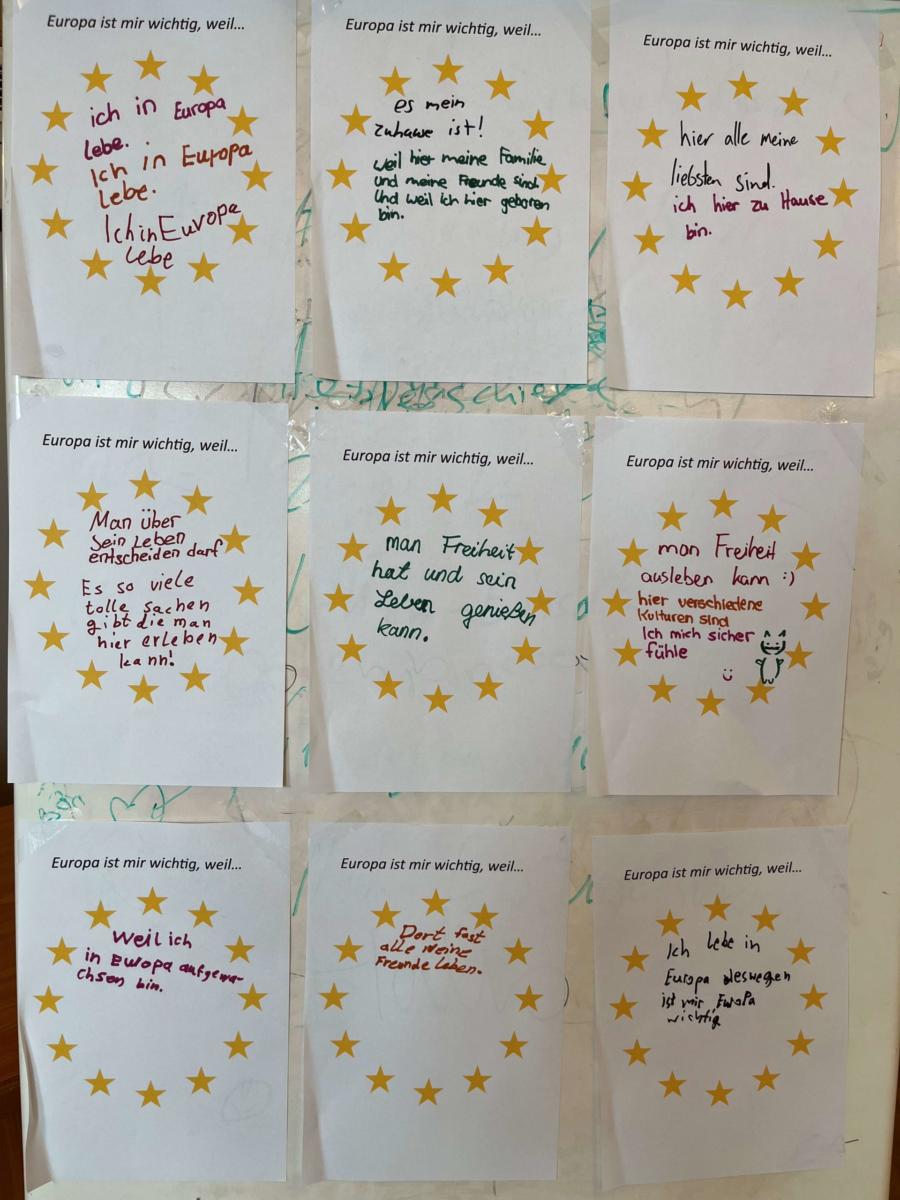 Europa ist mir wichtig, weil...
ich in Europa
lebe.
Ich in Europa
lebe.
Ich in Europa
lebe
Europa ist mir wichtig, weil...
es mein
zuhause ist!
weil hier meine Familie
und meine Freunde sind.
Und weil ich hier geboren
bin.
Europa ist mir wichtig, weil...
hier alle meine
liebsten sind.
ich hier zu Hause
bin.
Europa ist mir wichtig, weil...
Man über
sein Leben
entscheiden darf
Es so viele
tolle sachen
gibt die man
hier erleben
kann!
Europa ist mir wichtig, weil...
man Freiheit
hat und sein
Leben genießen
kann.
Europa ist mir wichtig, weil...
man Freiheit
ausleben kann :)
hier verschiedene
Kulturen sind
Ich mich sicher
fühle
Europa ist mir wichtig, weil...
Weil ich
in Europa aufgewa-
chsen bin.
Europa ist mir wichtig, weil...
Dort fast
alle meine
Freunde Leben.
Europa ist mir wichtig, weil...
Ich lebe in
Europa deswegen
ist mir Europa
wichtig